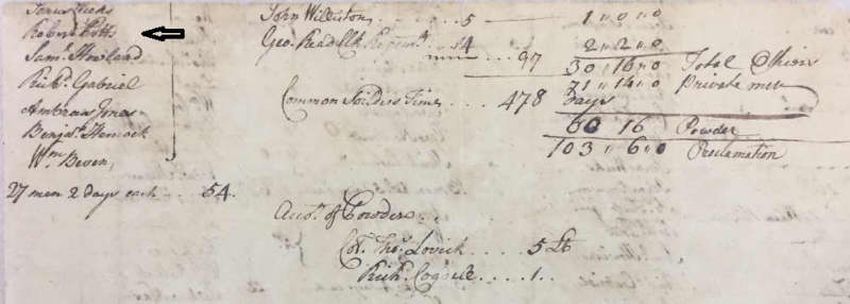 Robert Potts
Saml. Howland
Richd. Gabriel
Ambrous Jones
Benjan. Hancock
Wm. Bever,
27 men 2 days each .. 54.
John Williston, . . . . 5 . . . 1 " 0 " 0
Geo. Read . . 14 . . 97 2 " 2 " 0
30 " 16 " 0 Total Officers
71 " 14 " 0 Private men
Common Soldiers Time, . . . 478 Days
60 16 Powder
103 " 6 " 0 Proclamation
Acct. of Powder . .
Col. Tho. Lovick . . . . 5 lb
Richd. Cogdell . . . . 1 . .